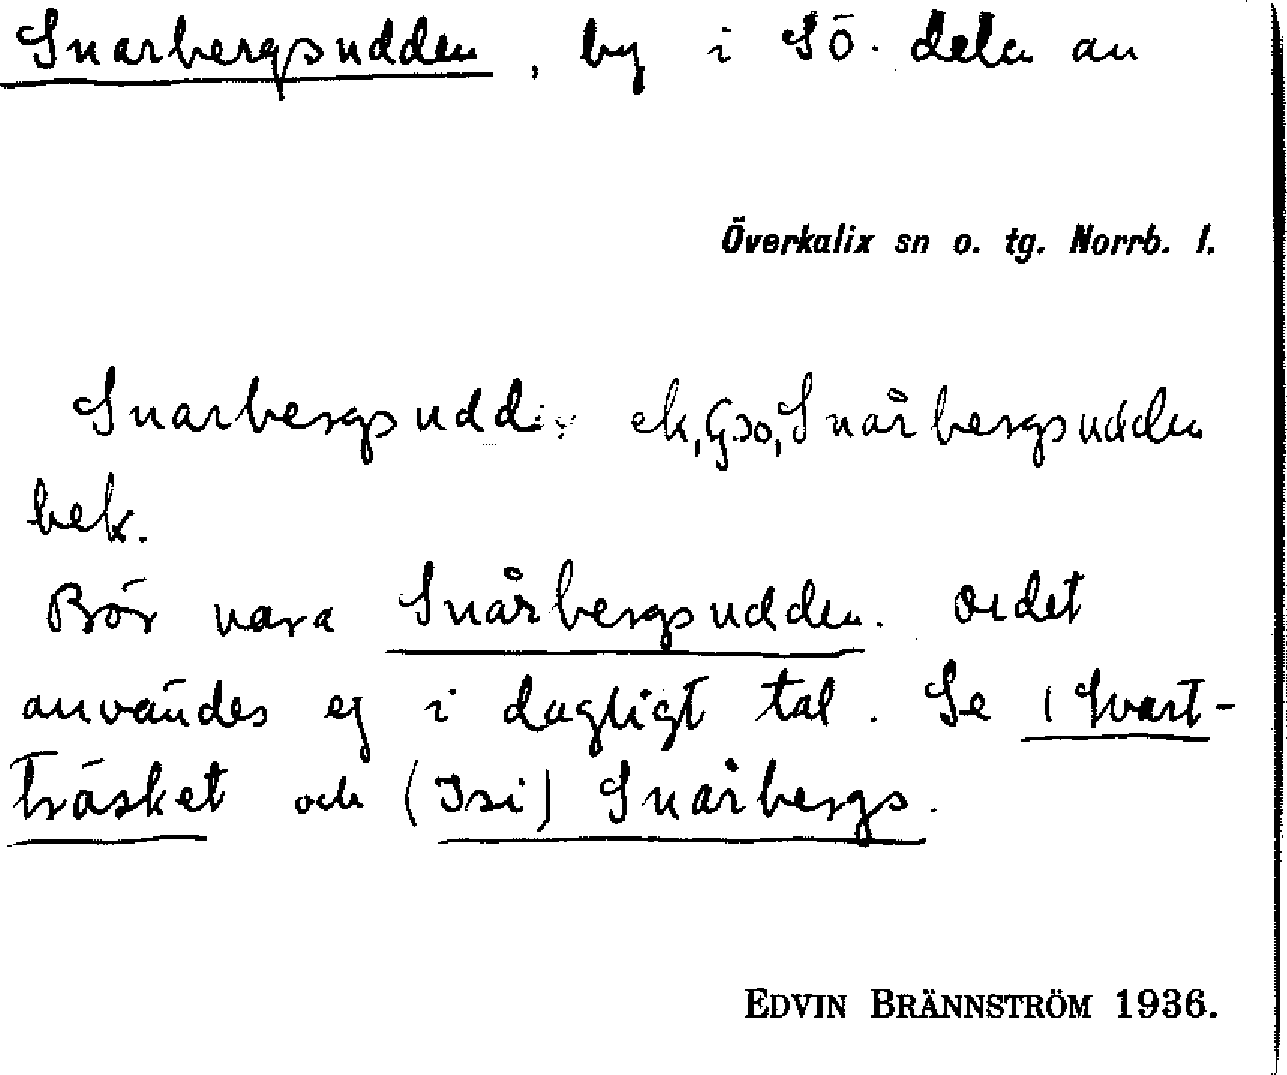 Snarbergsudden, by i Sö. delen av
Överkalix sn o. tg. Norrb. l.
Snarbergsudden ek, Gso, Snårbergsudden
bek.
Bör vara Snårbergsudden. Ordet
användes ej i dagligt tal. Se i Svart-
träsket och (Isi) Snårbergs.
EDVIN BRÄNNSTRÖM 1936.